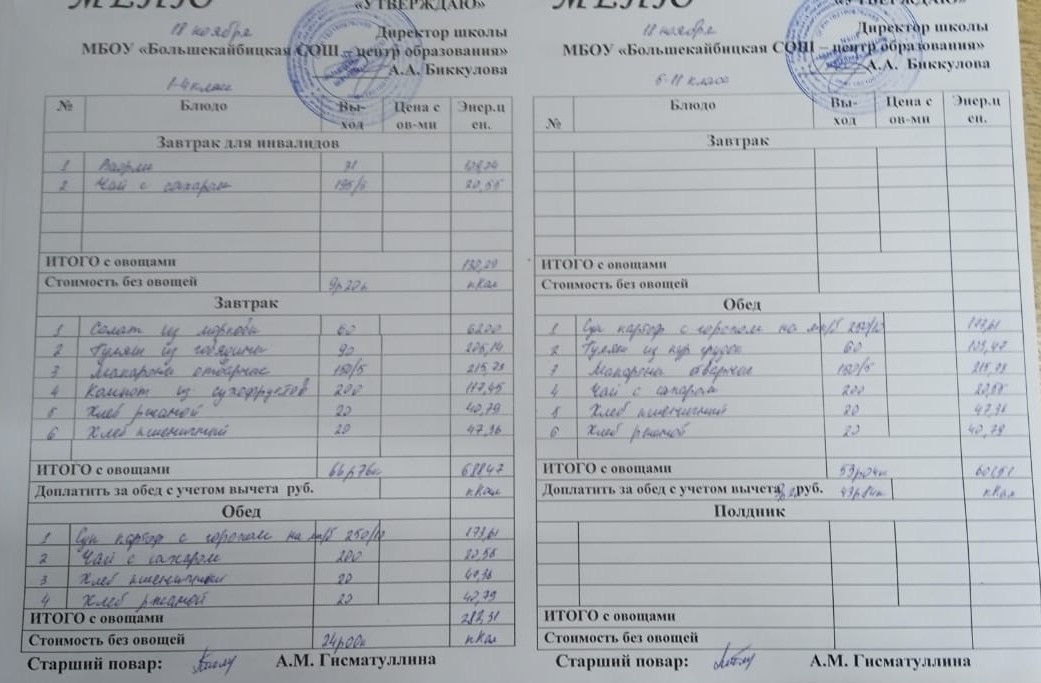 МЕНЮ
«УТВЕРЖДАЮ»
18 ноября
Директор школы
МБОУ «Большекайбицкая СОШ – центр образования»
А.А. Биккулова
1-4 класс
№ Блюдо Вы-ход Цена с ов-ми Энер.ц ен.
Завтрак для инвалидов
1
2 Чай с сахаром 20,55
ИТОГО с овощами
Стоимость без овощей 9р20к кКал
Завтрак
1 Салат из моркови 60
2 Гуляш из говядины 90 205,14
3 Макароны отварные 150/5 215,73
4 Компот из сухофруктов 200 117,45
5 Хлеб ржаной 20 40,79
6 Хлеб пшеничный 20 47,36
ИТОГО с овощами 66р76к 688,47
Доплатить за обед с учетом вычета руб. кКал
Обед
1 Суп картоф с горохом на мя/б 250/10 173,61
2 Чай с сахаром 200 20,55
3 Хлеб пшеничный 20
4 Хлеб ржаной 20 40,79
ИТОГО с овощами 282,31
Стоимость без овощей 24р00к кКал
Старший повар: А.М. Гисматуллина
МЕНЮ
«УТВЕРЖДАЮ»
18 ноября
Директор школы
МБОУ «Большекайбицкая СОШ – центр образования»
А.А. Биккулова
5-11 класс
№ Блюдо Вы-ход Цена с ов-ми Энер.ц ен.
Завтрак
ИТОГО с овощами
Стоимость без овощей
Обед
1 Суп картоф с горохом на мя/б 173,61
2 Гуляш из кур грудок 60 103,47
3 Макароны отварные 150/5 215,73
4 Чай с сахаром 200 20,55
5 Хлеб пшеничный 20 47,36
6 Хлеб ржаной 20 40,79
ИТОГО с овощами 53р04к
Доплатить за обед с учетом вычета руб. 43р84к кКал
Полдник
ИТОГО с овощами
Стоимость без овощей
Старший повар: А.М. Гисматуллина